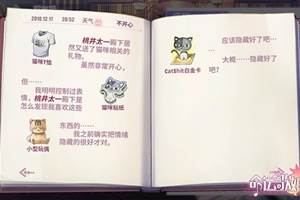 2018.12.17 20:52 天气 不开心
桃井太一殿下居
然又送了猫咪相关的
礼物。
虽然非常开心，
猫咪T恤
但……
我明明控制过表
情，桃井太一殿下是
怎么发现我喜欢这些
猫咪贴纸
东西的……
我之前确实把情绪
隐藏的很好才对。
小型玩偶
应该隐藏好了吧…
…
大概……隐藏好了
吧？
CatShit白金卡